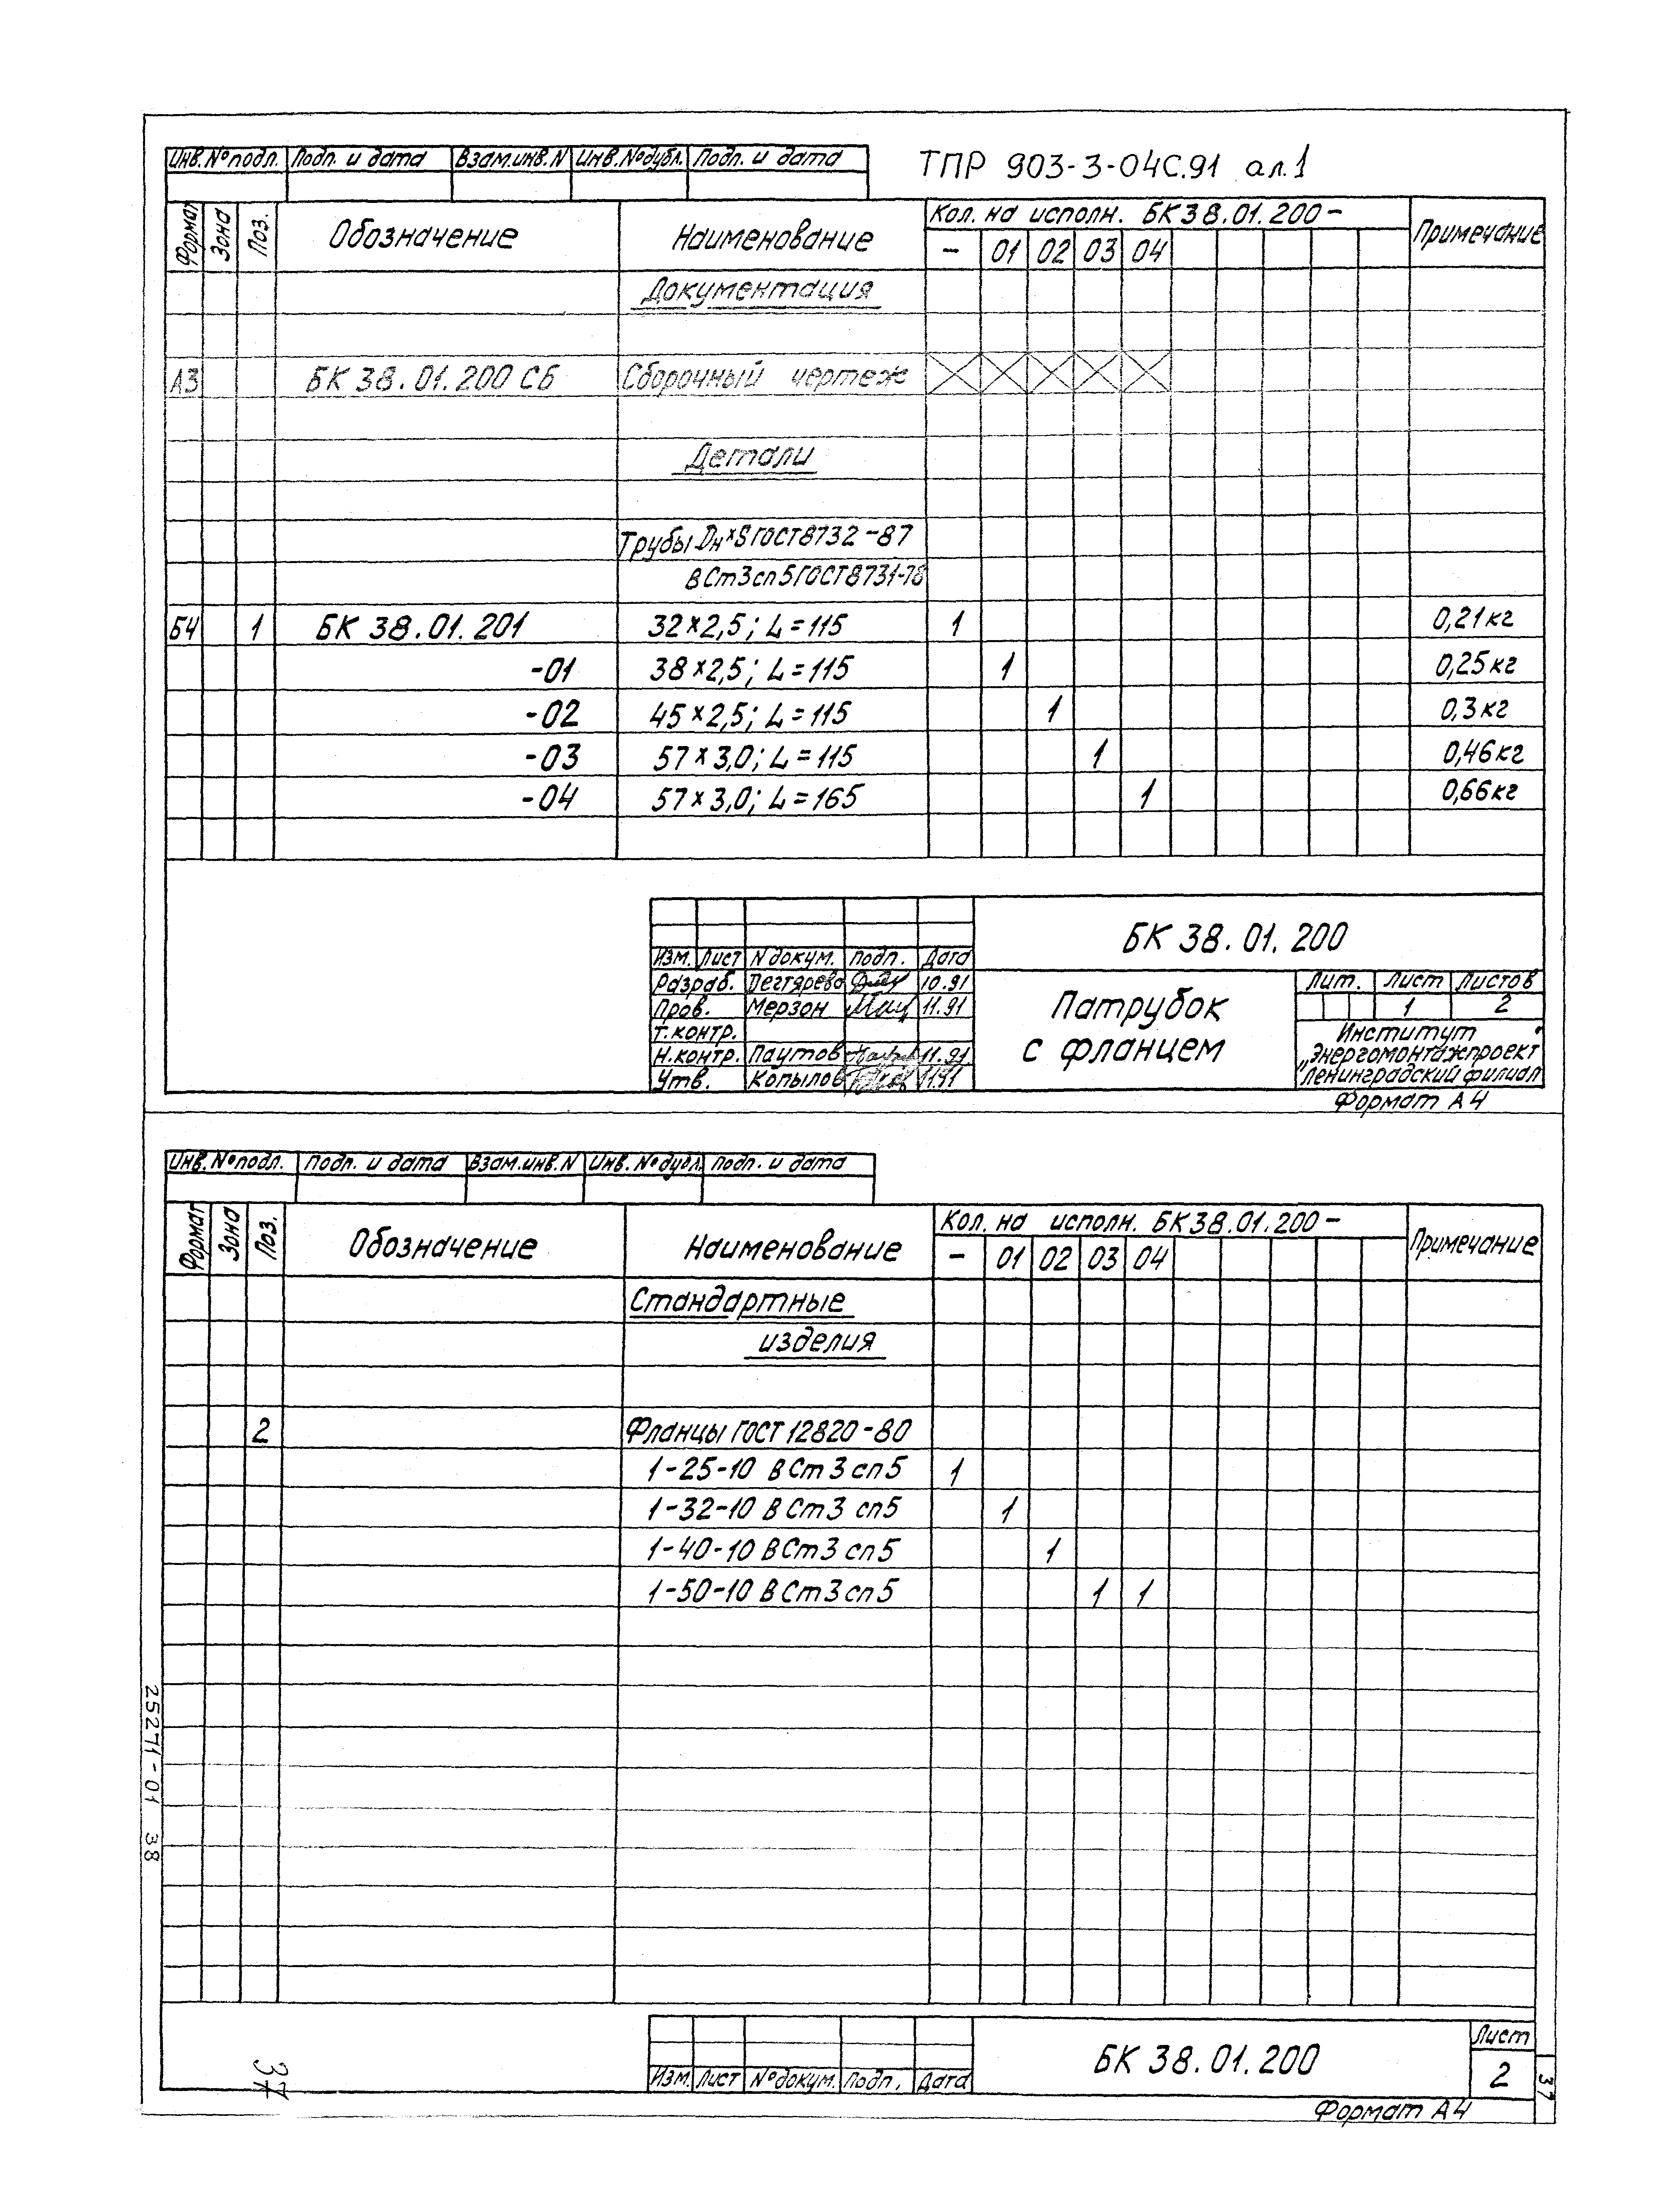 Инв. № подл. Подп. и дата Взам.инв.N Инв. № дубл. Подп. и дата
ТПР 903-3-04С.91 ал.1
Формат Зона Поз. Обозначение Наименование Кол. на исполн. БК 38.01.200- Примечание
- 01 02 03 04
Документация
А3 БК 38.01.200 СБ Сборочный чертеж
Детали
Трубы Dн×S ГОСТ 8732-87
В Ст3сп5 ГОСТ 8731-78
Б4 1 БК 38.01.201 32×2,5; L=115 1 0,21 кг
-01 38×2,5; L=115 1 0,25 кг
-02 45×2,5; L=115 1 0,3 кг
-03 57×3,0; L=115 1 0,46 кг
-04 57×3,0; L=165 1 0,66 кг
БК 38.01.200
Изм. Лист N докум. Подп. Дата
Разраб. Дегтярева 10.91
Пров. Мерзон 11.91
Т.контр.
Н.контр. Паутов 11.91
Утв. Копылов 11.91
Патрубок
с фланцем
Лит. Лист Листов
1 2
Институт
"Энергомонтажпроект"
Ленинградский филиал
Формат А4
Инв. № подл. Подп. и дата Взам.инв.N Инв. № дубл. Подп. и дата
Формат Зона Поз. Обозначение Наименование Кол. на исполн. БК 38.01.200- Примечание
- 01 02 03 04
Стандартные
изделия
2 Фланцы ГОСТ 12820-80
1-25-10 В Ст 3 сп5 1
1-32-10 В Ст3 сп5 1
1-40-10 В Ст3 сп5 1
1-50-10 В Ст3 сп5 1 1
25271-01 38
Изм. Лист № докум. Подп. Дата
БК 38.01.200
Лист
2
37
37
Формат А4